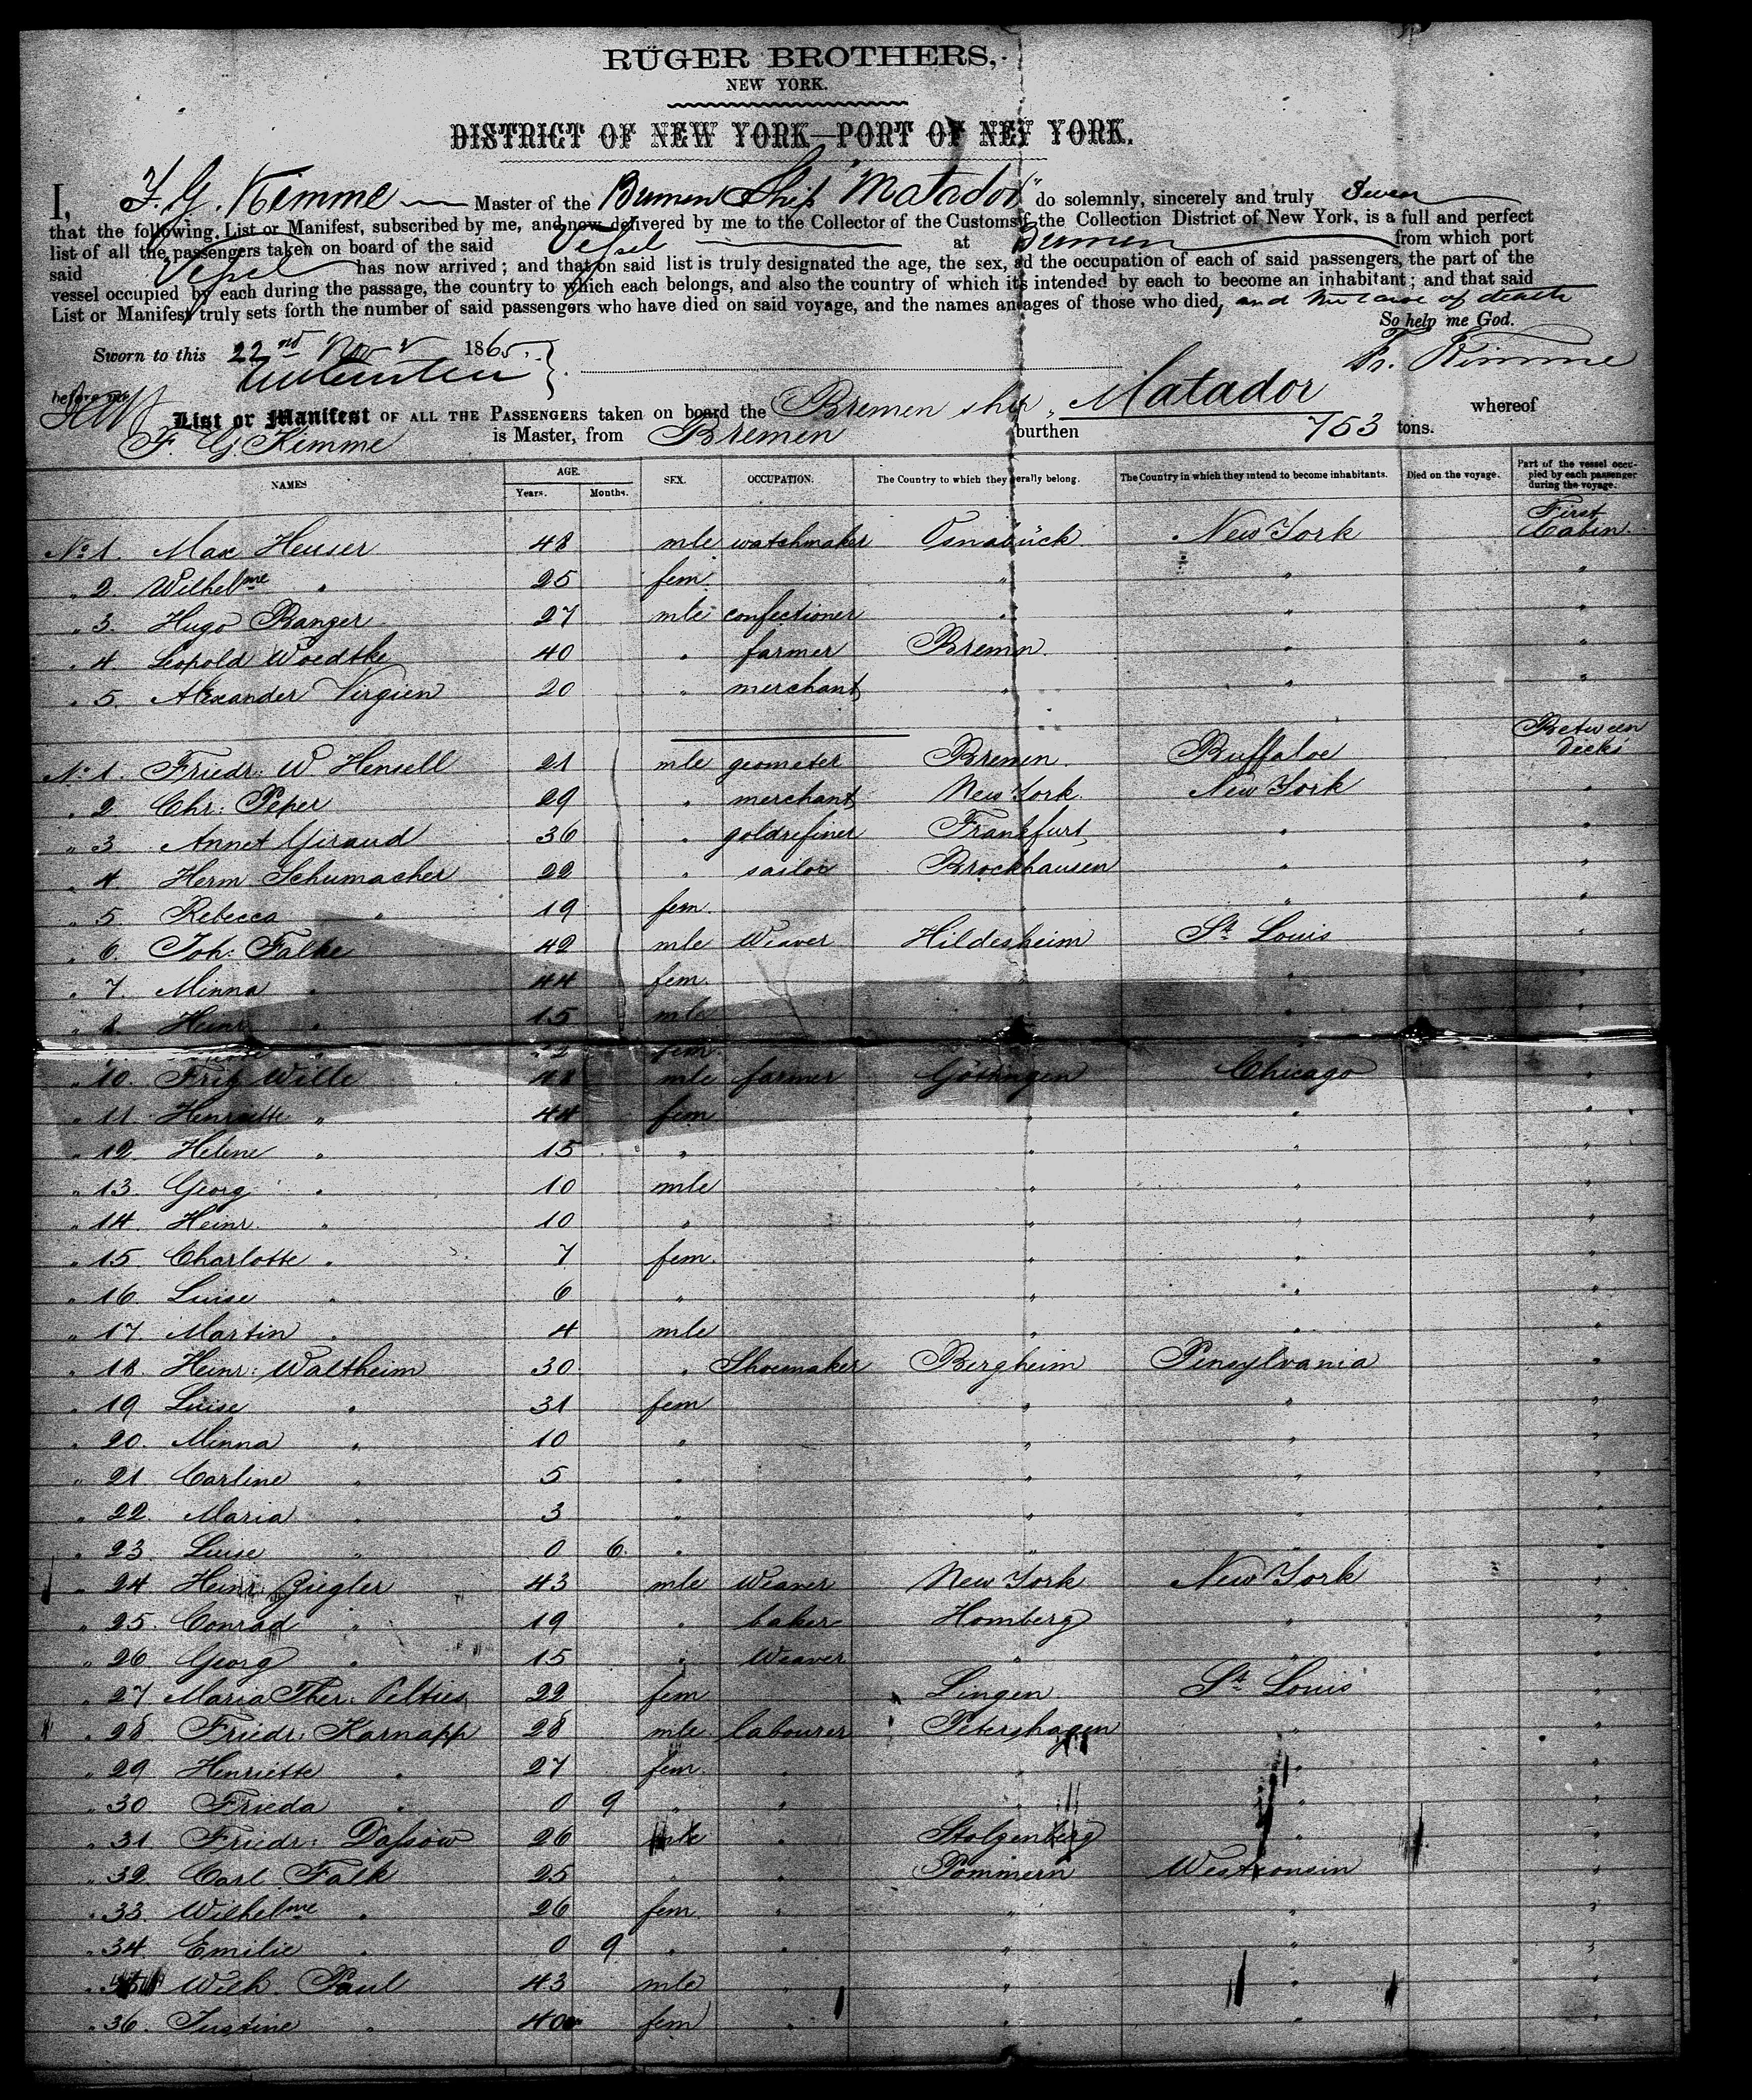 RÜGER BROTHERS,
NEW YORK.
DISTRICT OF NEW YORK—PORT OF NEW YORK.
I, F. G. Kimme Master of the Bremen Ship "Matador" do solemnly, sincerely and truly Swear
that the following List or Manifest, subscribed by me, and now delivered by me to the Collector of the Customs of the Collection District of New York, is a full and perfect
list of all the passengers taken on board of the said Vessel at Bremen from which port
said Vessel has now arrived; and that on said list is truly designated the age, the sex, and the occupation of each of said passengers, the part of the
vessel occupied by each during the passage, the country to which each belongs, and also the country of which it is intended by each to become an inhabitant; and that said
List or Manifest truly sets forth the number of said passengers who have died on said voyage, and the names and ages of those who died, and the cause of death
So help me God.
Sworn to this 22nd Novr 1865.
Fr. Kimme
before me
List or Manifest OF ALL THE PASSENGERS taken on board the Bremen ship "Matador whereof
F. G. Kimme is Master, from Bremen burthen 753 tons.
NAMES AGE. Years. Months. SEX. OCCUPATION. The Country to which they severally belong. The Country in which they intend to become inhabitants. Died on the voyage. Part of the vessel occupied by each passenger during the voyage.
First
No 1. Max Heuser 48 mle watchmaker Osnabück New York Cabin.
" 2. Wilhelme " 25 fem " " "
" 3. Hugo Ranger 27 mle confectioner " " "
" 4. Leopold Woedtke 40 " farmer Bremn " "
" 5. Alexander Virgien 20 " merchant " " "
Between
No 1. Friedr: W. Hensell 21 mle geometer Bremen. Buffaloe Decks
" 2. Chr: Peper 29 " merchant New York New York "
" 3 Annet Giraud 36 " goldrefiner Frankfurt " "
" 4. Herm Schumacher 22 " sailor Brockhausen " "
" 5 Rebecca " 19 fem. " " "
" 6. Joh: Falke 42 mle Weaver Hildesheim St. Louis "
" 7. Minna " 44 fem. " " "
" 8. Heinr " 15 mle " "
fem.
" 10. Fritz Wille 48 mle farmer Göttingen Chicago "
" 11. Henriette " 44 fem " " "
" 12. Helene " 15 " " " "
" 13. Georg " 10 mle " " "
" 14. Heinr. " 10 " " " "
" 15 Charlotte " 7 fem. " " "
" 16. Luise " 6 " " " "
" 17. Martin " 4 mle " " "
" 18. Heinr: Waltheim 30 " Shoemaker Bergheim Pensylvania "
" 19 Luise " 31 fem " " "
" 20. Minna " 10 " " " "
" 21. Carline " 5 " " " "
" 22 Maria " 3 " " " "
" 23. Luise " 0 6. " " " "
" 24 Heinr. Ziegler 43 mle Weaver New York New York "
" 25. Conrad " 19 " baker Homberg " "
" 26 Georg " 15 " Weaver " " "
" 27 Maria Ther: Pelties 22 fem Lingen St. Louis "
" 28 Friedr: Karnapp 28 mle labourer Petershagen " "
" 29 Henriette " 27 fem. " " " "
" 30 Frieda " 0 9 " " " " "
" 31 Friedr: Dassow 26 mle " Stolzenberg " "
" 32 Carl Falk 25 " " Pommern Westconsin "
" 33. Wilhelme " 26 fem " " " "
" 34. Emilie " 0 9 " " " " "
" 35 Wilh. Paul 43 mle " " " "
" 36. Justine " 40 fem " " " "